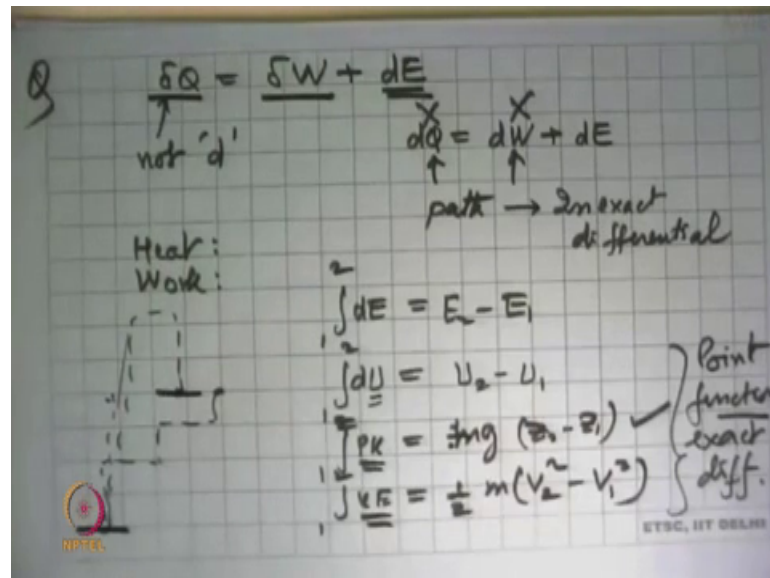 δQ = δW + dE
not 'd'
dQ = dW + dE
path → Inexact
differential
Heat:
Work:
∫₁² dE = E₂ - E₁
∫₁² dU = U₂ - U₁
∫₁² PE = mg (Z₂ - Z₁) ✓
∫₁² KE = ½ m(V₂² - V₁²)
Point
function
exact
diff.
NPTEL
ETSC, IIT DELHI